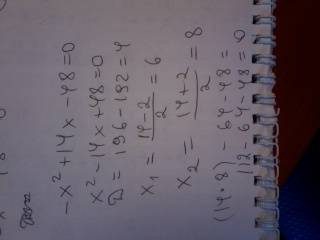 -x²+14x-48=0
x²-14x+48=0
D=196-192=4
x₁ = (14-2)/2 = 6
x₂ = (14+2)/2 = 8
(14·8) - 64-48=
112-64-48=0